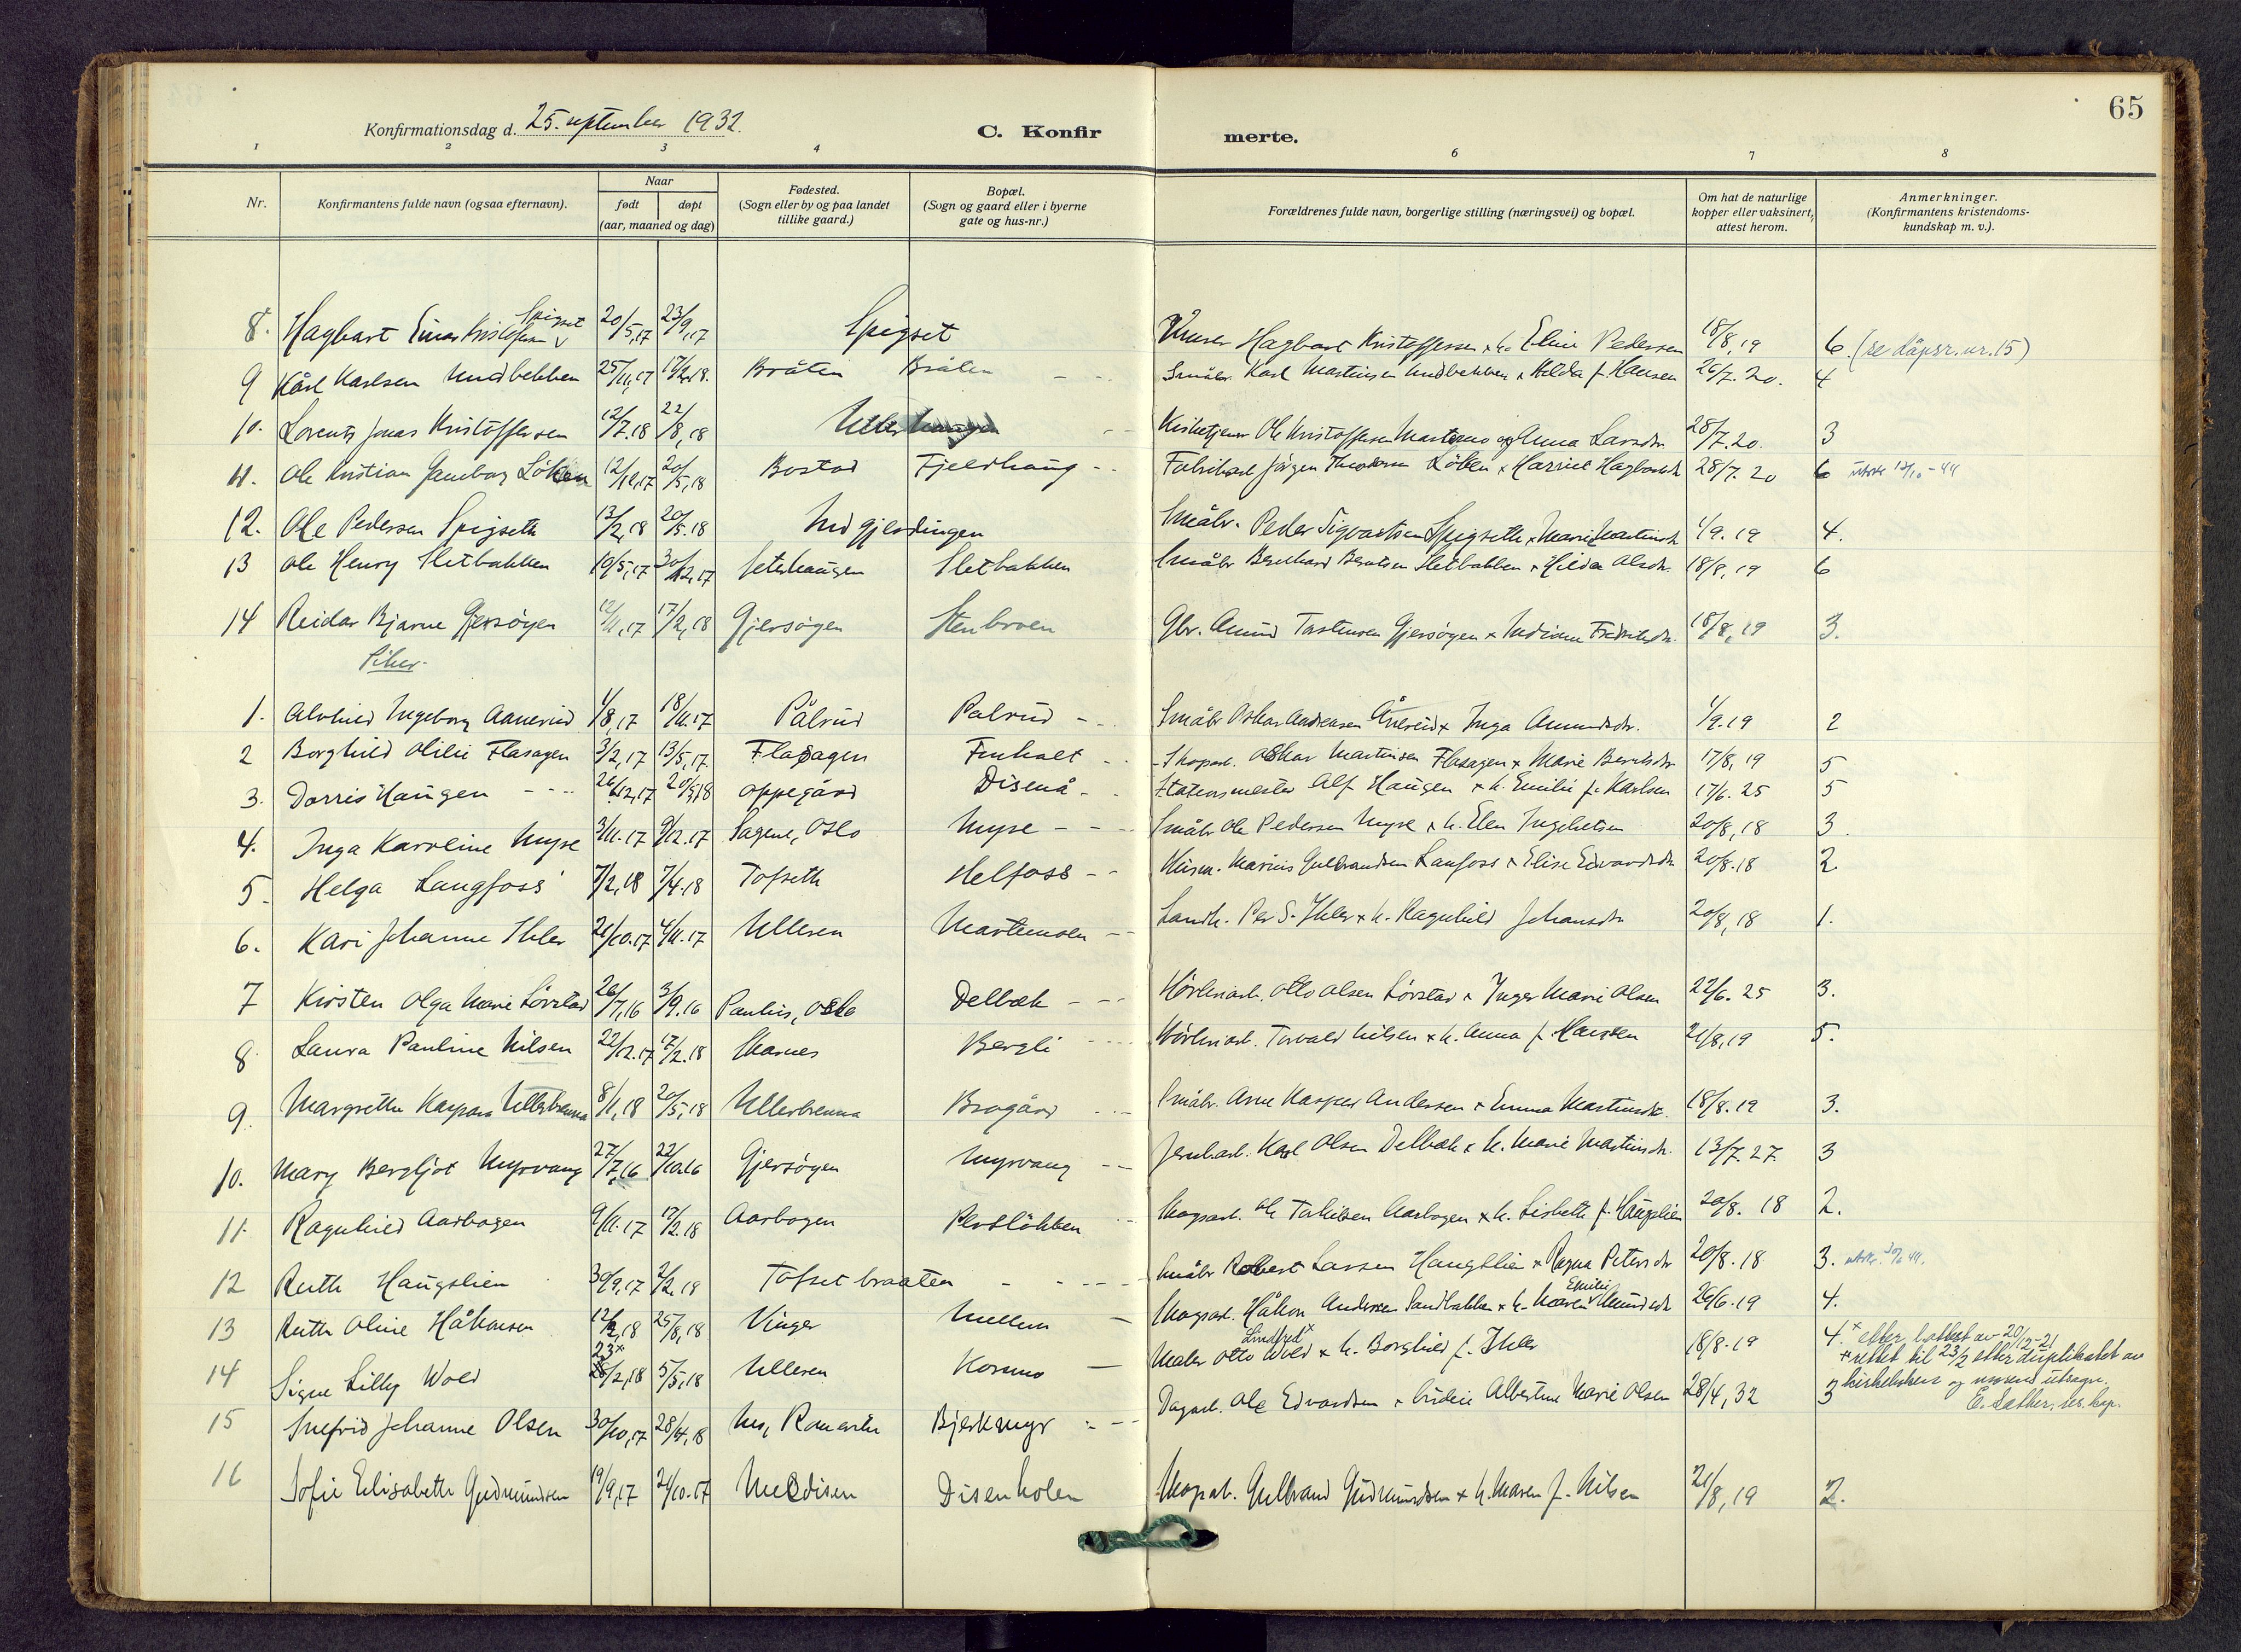 65
Konfirmationsdag d. 25. september 1932.
C. Konfir merte.
1 2 3 4 6 7 8
Nr. Konfirmantens fulde navn (ogsaa efternavn). Naar født døpt (aar, maaned og dag) Fødested. (Sogn eller by og paa landet tillike gaard.) Bopæl. (Sogn og gaard eller i byerne gate og hus-nr.) Forældrenes fulde navn, borgerlige stilling (næringsvei) og bopæl. Om hat de naturlige kopper eller vaksinert, attest herom. Anmerkninger. (Konfirmantens kristendoms-kundskap m. v.).
8. Hagbart Einar Kristoffersen Spigset 20/5,17 23/9,17 Spigset Hagbart Kristoffersen x h. Eline Pedersen 18/8,19 6. (se dåpsr. nr. 15)
9 Kåre Karlsen Undbekken 25/11,17 17/2,18. Bråten Bråten Småbr. Karl Martinsen Undbekken x Hilda f. Hansen 26/7. 20. 4
10. Lorents Jonas Kristoffersen 12/7.18 22/8,18 Ullerhaugen Kirketjener Ole Kristoffersen Martemo og Anna Larsdtr. 28/7.20. 3
11. Ole Kristian Løken 12/12,17 20/5,18 Bostad Fjeldhaug Fabrikarb. Jørgen Løken x 28/7. 20 6 utskr. 12/10-44
12. Ole Pedersen Spigseth 13/2,18 20/5.18 Nedgjerdingen Småbr. Peder Sigvartsen Spigseth x Marie Martinsdtr 1/9.19 4.
13 Ole Henry Sletbakken 10/5,17 30/12,17 Seterhaugen Sletbakken Småbr Bernhard Berntsen Sletbakken x Hilda Olsdtr. 18/8,19 6
14 Reidar Bjarne Gjersøyen 12/11,17 17/2,18 Gjersøyen Stenbroen Gbr. Amund Torstensen Gjersøyen x Indiane Fredriksdtr. 18/8,19 3.
Piker.
1. Alvhild Ingeborg Aanerud 4/8,17 18/11.17 Pålrud Palrud Småbr Oskar Andreasen Ånerud x Inga Amundsdtr. 4/9.19 2
2 Borghild Olilie Flasagen 3/2,17 13/5,17 Flasagen Finholt Skogsarb. Oskar Martinsen Flasagen x Marie Berntsdtr 17/8,19 5
3. Dorris Haugen 26/12,17 20/5,18 Oppegård Disenå Stationsmester Alf Haugen x h. Emilie f. Karlsen 17/6.25 5
4. Inga Karoline Myre 3/11.17 9/12.17 Sagene, Oslo Myre Småbr Ole Pedersen Myre x h. Elen Ingebretsen 20/8,18 3.
5. Helga Langfoss 7/2,18 7/4.18 Tofseth Helfoss Husm. Marius Gulbrandsen Langfoss x Elise Edvardsdtr 20/8.18 2.
6. Kari Johanne Ihler 21/10.17 4/11.17 Ulleren Martemoen Landh. Per S. Ihler x h. Ragnhild Johansdtr 20/8,18 1.
7 Kirsten Olga Marie Lörstad 26/7,16 3/9.16 Paulus, Oslo Delbæk Høvleriarb. Otto Olsen Lörstad x Inger Marie Olsen 22/6.25 3.
8. Laura Pauline Nilsen 22/12.17 17/2.18 Skarnes Bergli Høvleriarb. Torvald Nilsen x h. Anna f. Hansen 21/8,19 5.
9. Margrethe Kaspara Ullerbrenna 8/1,18 20/5.18 Ullerbrenna Brogård Småbr. Arne Kasper Andersen x Emma Martinsdtr. 18/8.19 3.
10. Mary Bergljot Myrvang 27/7,16 22/10.16 Gjersøyen Myrvang Jernb.arb. Karl Olsen Delbæk x h. Marie Martinsdtr. 13/7.27. 3
11. Ragnhild Aarbogen 9/11.17 17/2.18 Aarbogen Perslökken Skogsarb. Ole Torkilsen Aarbogen x h. Lisbeth f. Haugslien 20/8. 18 2.
12 Ruth Haugslien 30/9,17 2/2,18 Tofsetbraaten Småbr Robert Larsen Haugslien x Ragna Petersdtr 20/8.18 3. utskr. 44.
13 Ruth Oline Håkonsen 12/2,18 25/8,18 Vinger Mellem Skogsarb. Håkon Andersen Sandbakken x h. Maren Emilie Amundsdtr 26/6.19 4.
14 Signe Lilly Wold 23x 28/2,18 5/5,18 Ulleren Kormo Maler Otto Lindfred x Wold x h. Borghild f. Ihler 18/8.19 4. x efter dåpsattest av 20/2-21
x rettet til 23/2 efter duplikatet av kirkeboken og morens utsagn. E. Sæther, res. kap.
15 Snefrid Johanne Olsen 30/10,17 28/4,18 Nes, Romerike Bjerkmyr Dagarb. Ole Edvardsen x Albertine Marie Olsen 28/4,32 3
16 Sofie Elisabeth Gudmundsen 19/9,17 21/10.17 Meldisen Disenholen Skogsarb. Gulbrand Gudmundsen x h. Maren f. Nilsen 21/8,19 2.